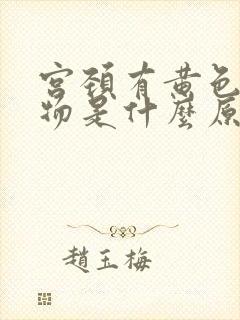 宫颈有黄色
物是什麼原
趙玉梅